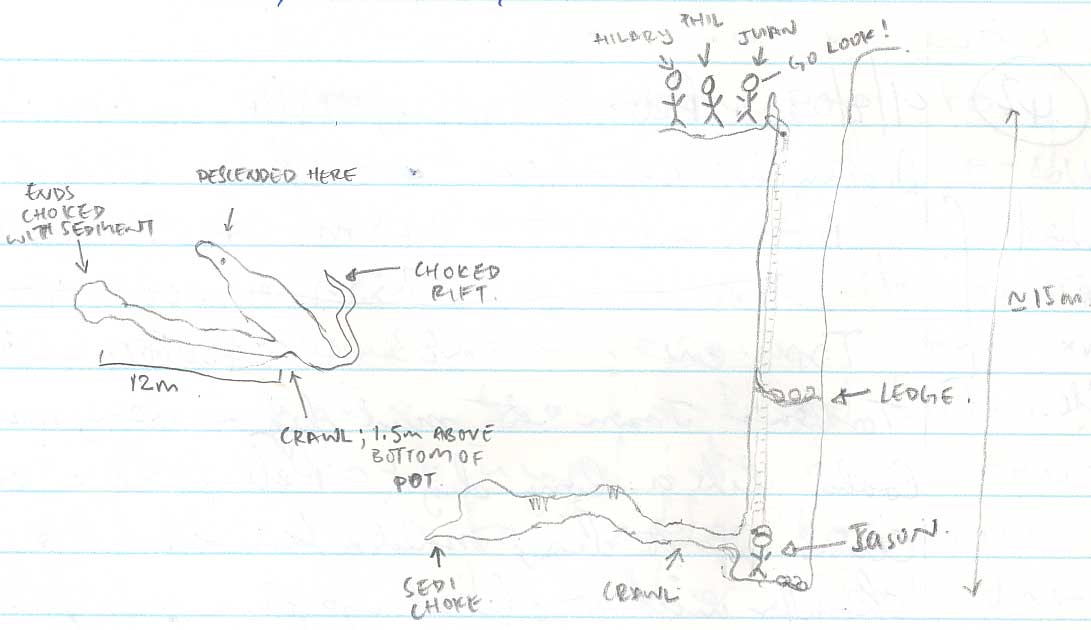 HILARY
PHIL
JUAN
GO LOOK!
DESCENDED HERE
ENDS
CHOKED
WITH SEDIMENT
CHOKED
RIFT.
12m
CRAWL; 1.5m ABOVE
BOTTOM OF
POT.
~15m.
LEDGE.
JASON.
SEDI
CHOKE.
CRAWL